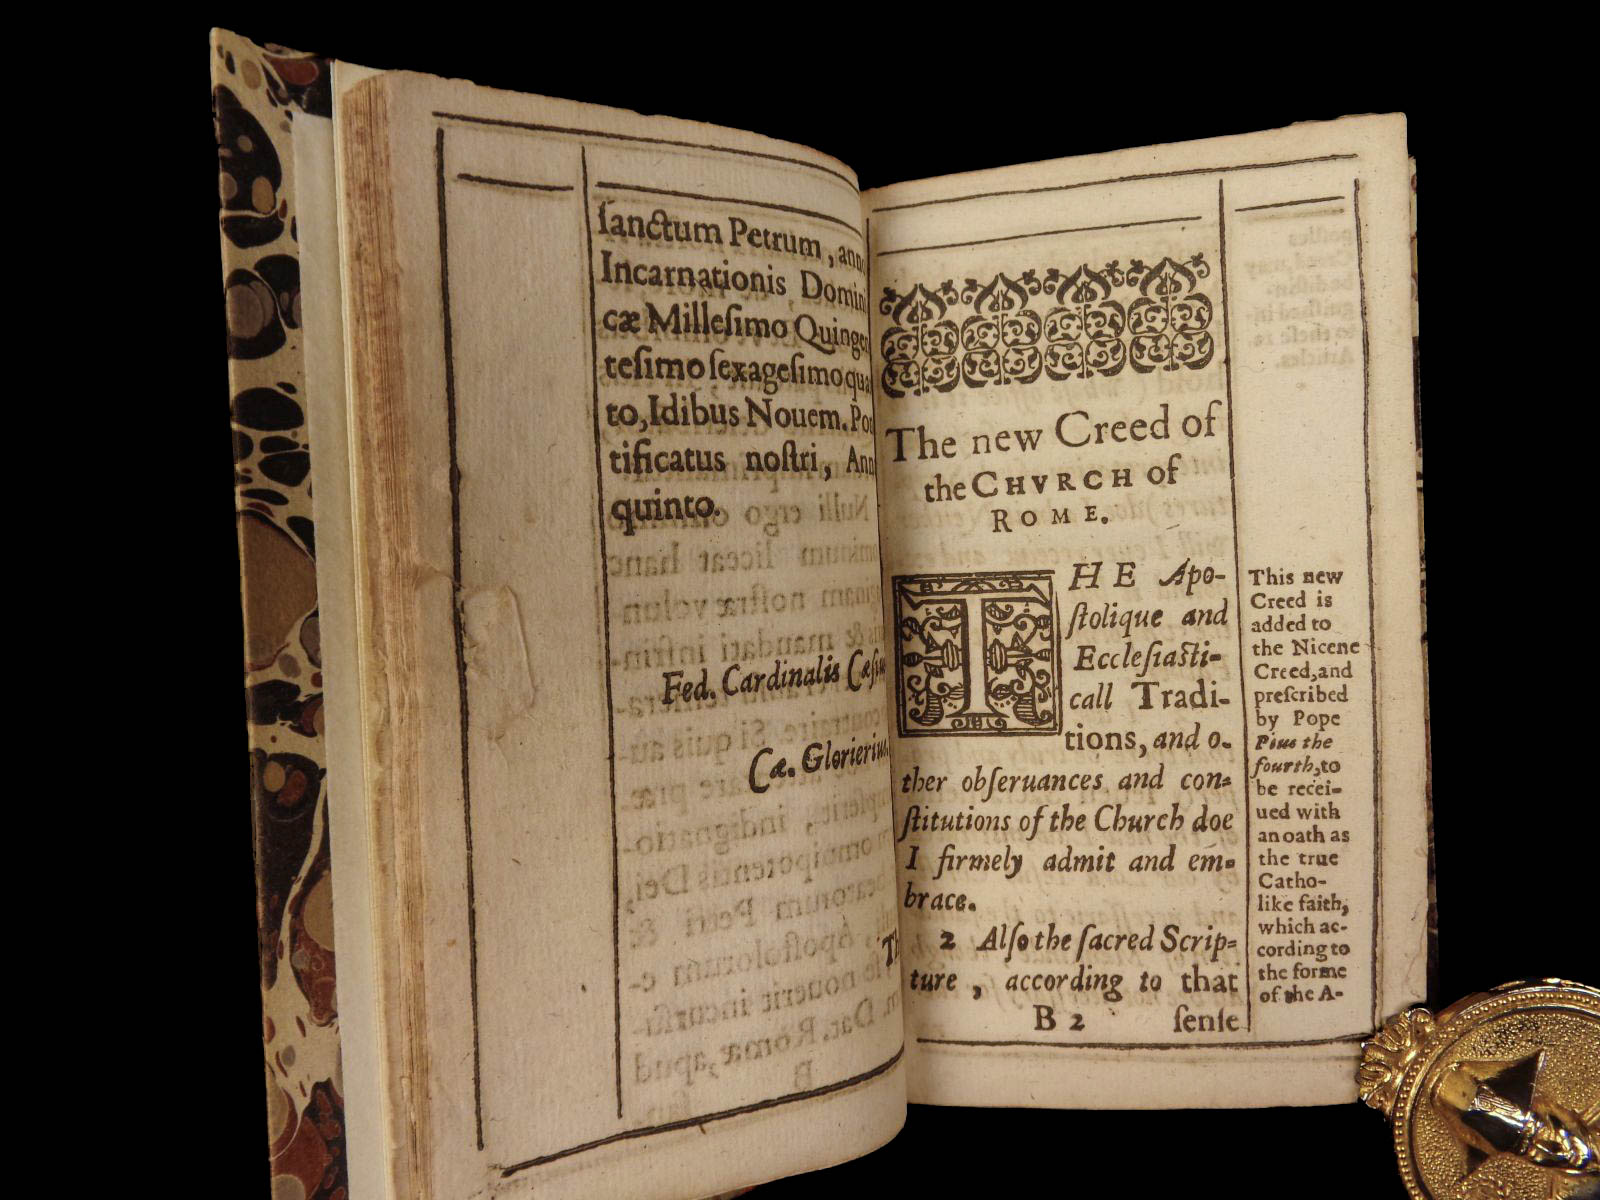 ſanctum Petrum, anno
Incarnationis Domini
cæ Milleſimo Quingen
teſimo ſexageſimo qua
to, Idibus Nouem. Pon
tificatus noſtri, Ann
quinto.
Fed. Cardinalis Cæſius
Cæ. Glorierius.
Th
The new Creed of
the CHVRCH of
ROME.
THE Apo-
ſtolique and
Eccleſiaſti-
call Tradi-
tions, and o-
ther obſeruances and con-
ſtitutions of the Church doe
I firmely admit and em-
brace.
2 Alſo the ſacred Scrip-
ture, according to that
B 2 ſenſe
This new
Creed is
added to
the Nicene
Creed, and
preſcribed
by Pope
Pius the
fourth, to
be recei-
ued with
an oath as
the true
Catho-
like faith,
which ac-
cording to
the forme
of the A-